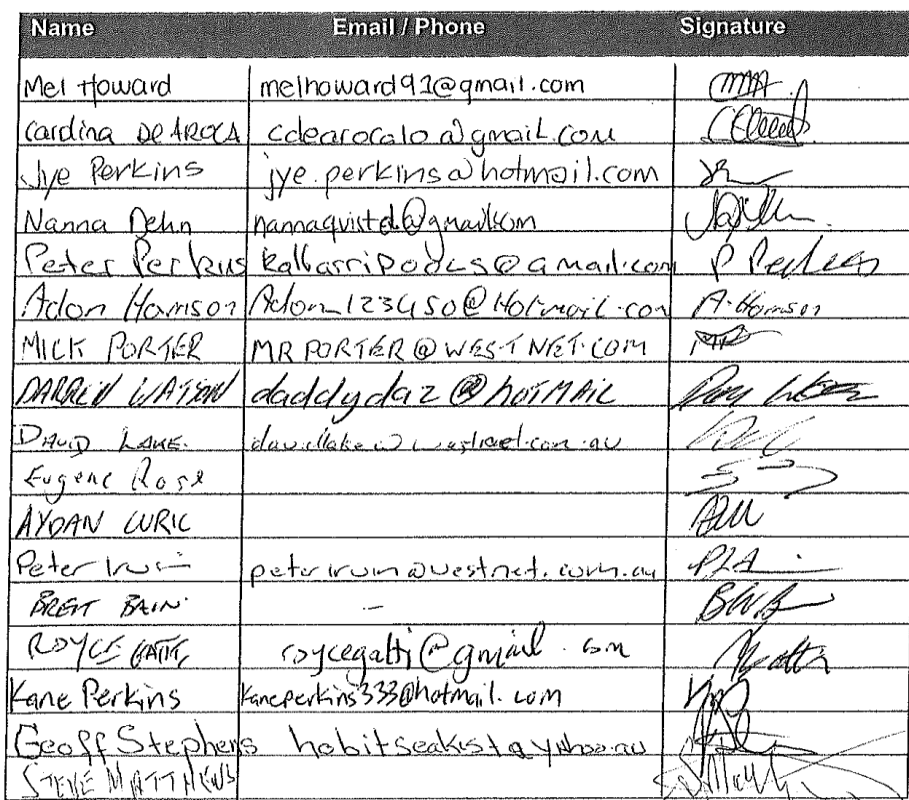 Name Email / Phone Signature
Mel Howard melhoward91@gmail.com
Cardina DE AROCA cdearocalo@gmail.com
Jye Perkins jye.perkins@hotmail.com
Nanna Dehn nannaquistd@gmail.com
Peter Perkins kalbarripodcs@gmail.com P Perkins
Adon Harrison Adon_123450@Hotmail.com A. Harrison
MICK PORTER MRPORTER@WESTNET.COM
DARREN WATSON daddydaz@hOTMAIL
DAVID LAKE. davidlake@westnet.com.au
Eugene Rose
AYDAN LURIC
Peter Irwin peterirwin@westnet.com.au
BRETT BAIN -
ROYCE GATTI roycegatti@gmail.com
Kane Perkins kaneperkins333@hotmail.com
Geoff Stephens
STEVE MATTHEWS